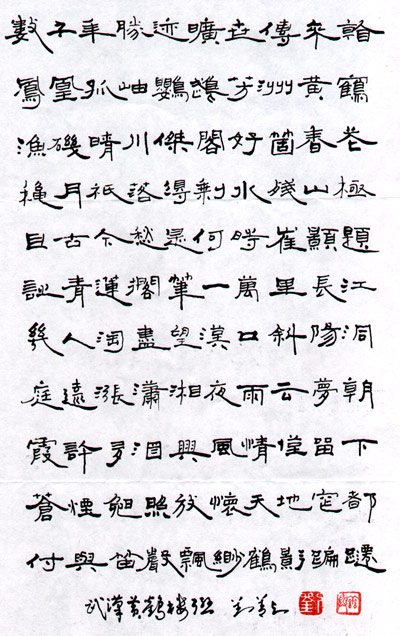 數千年勝迹曠世傳來看
鳳凰孤岫鸚鵡芳洲黃鶴
漁磯晴川傑閣好箇春花
穐月祇落得剩水殘山極
目古今愁是何時崔顥題
詩青蓮擱筆一萬里長江
幾人淘盡望漢口斜陽洞
庭遠漲瀟湘夜雨云夢朝
霞許多酒興風情僅留下
蒼煙晚照放懷天地窄都
付與笛聲飄緲鶴影蹁躚
武漢黃鶴樓聯 劉
劉